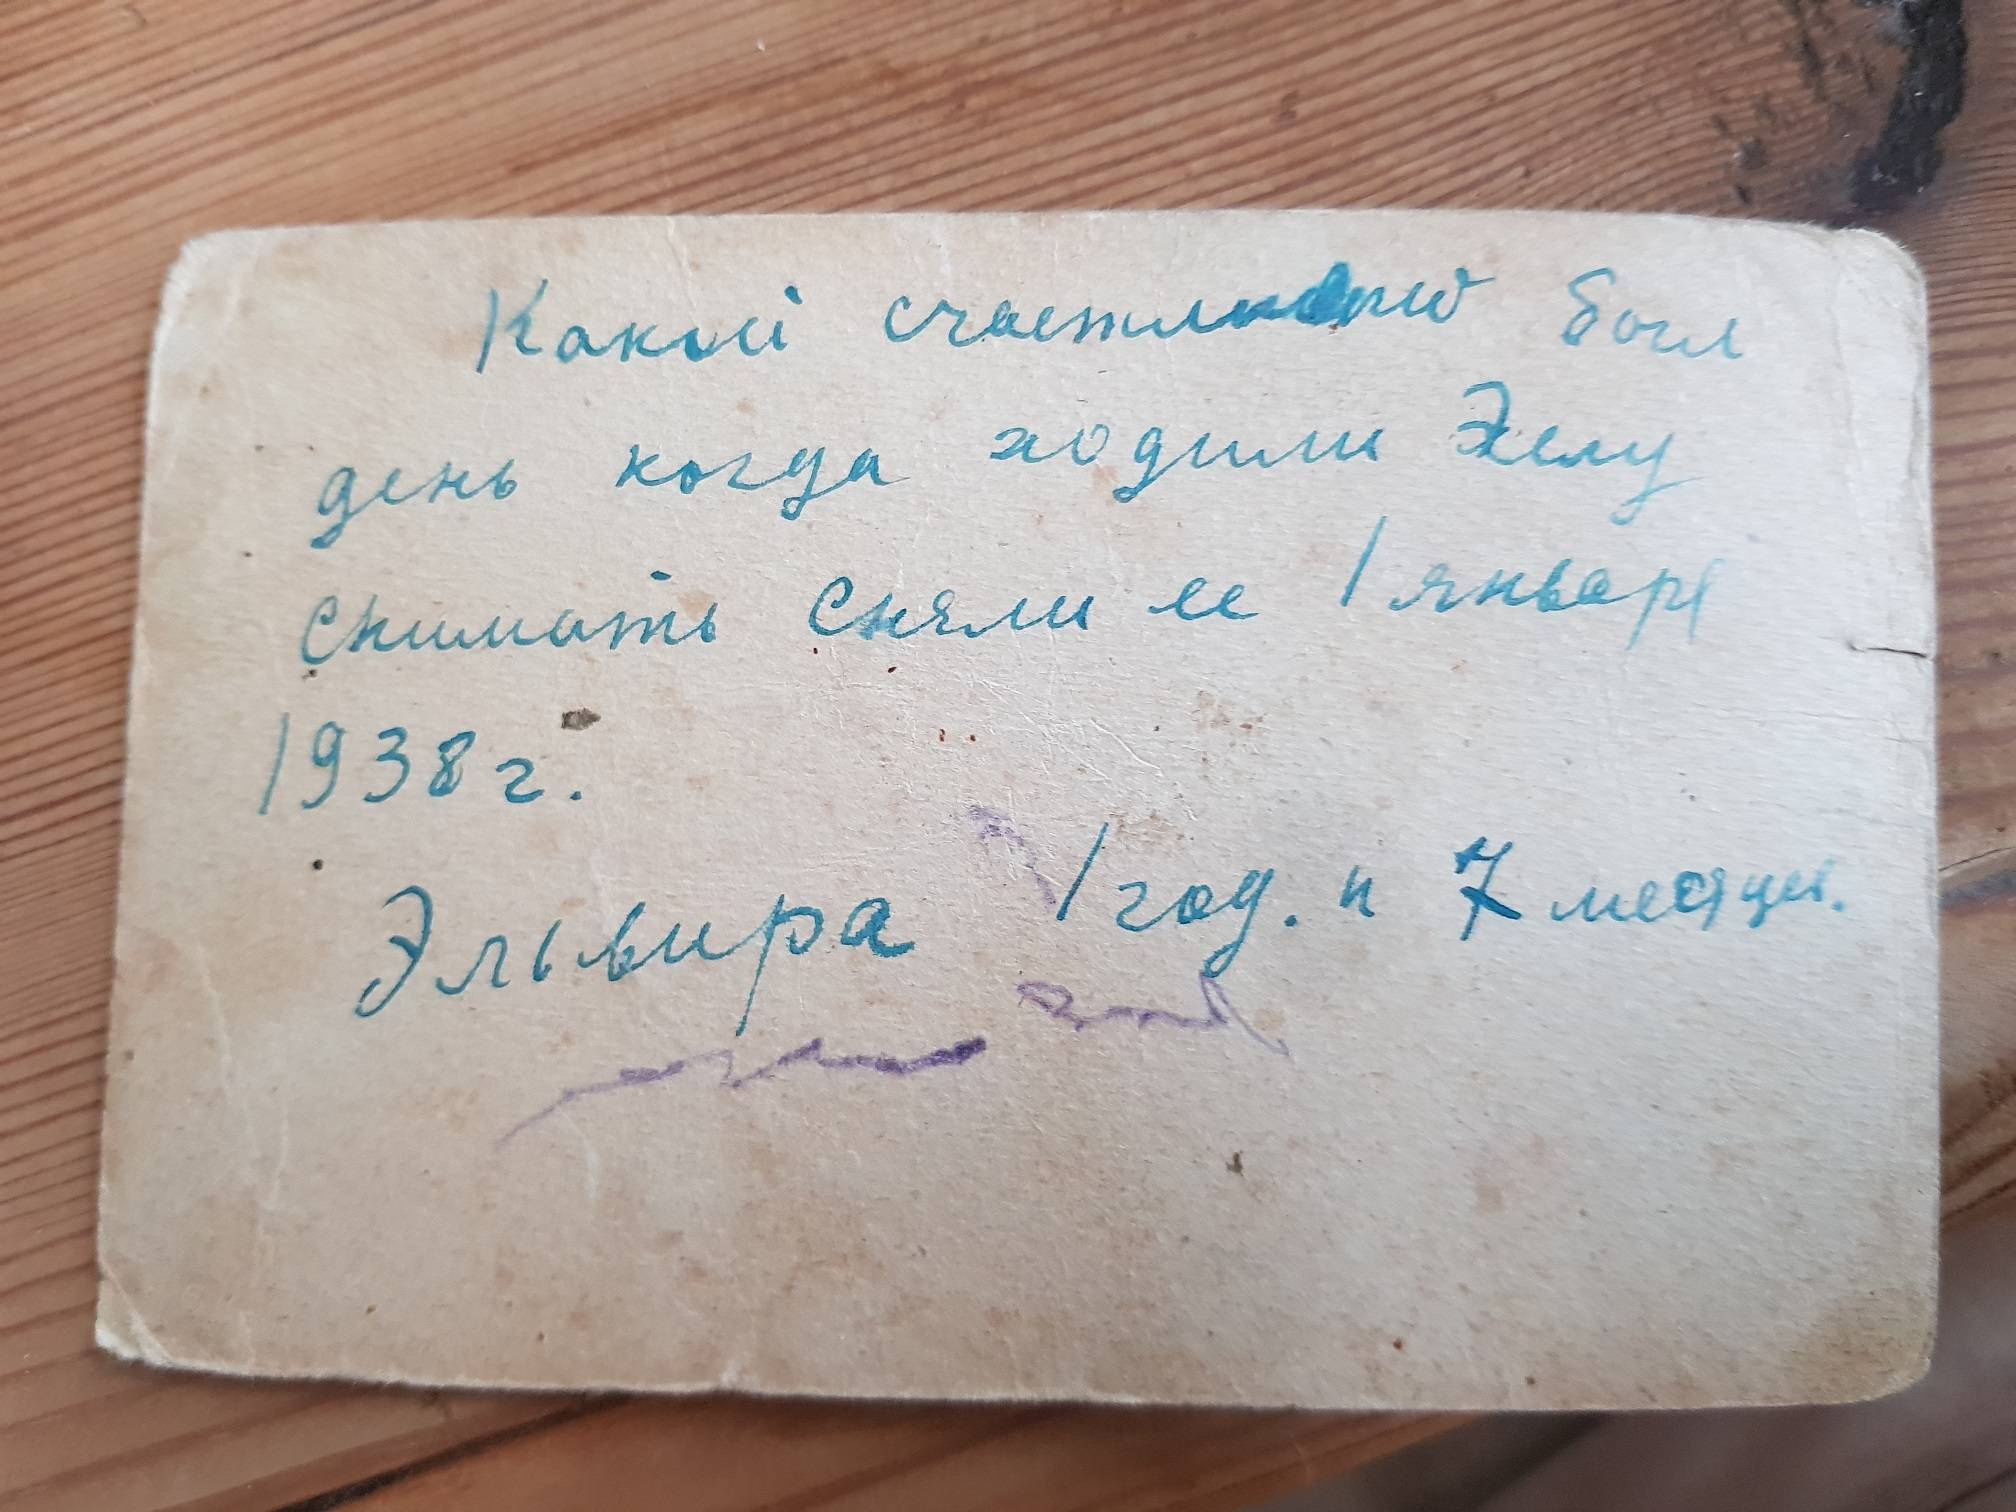 Какой счастливый был
день когда ходили Элу
снимать сняли ее 1 января
1938 г.
Эльвира 1 год. и 7 месяцы.